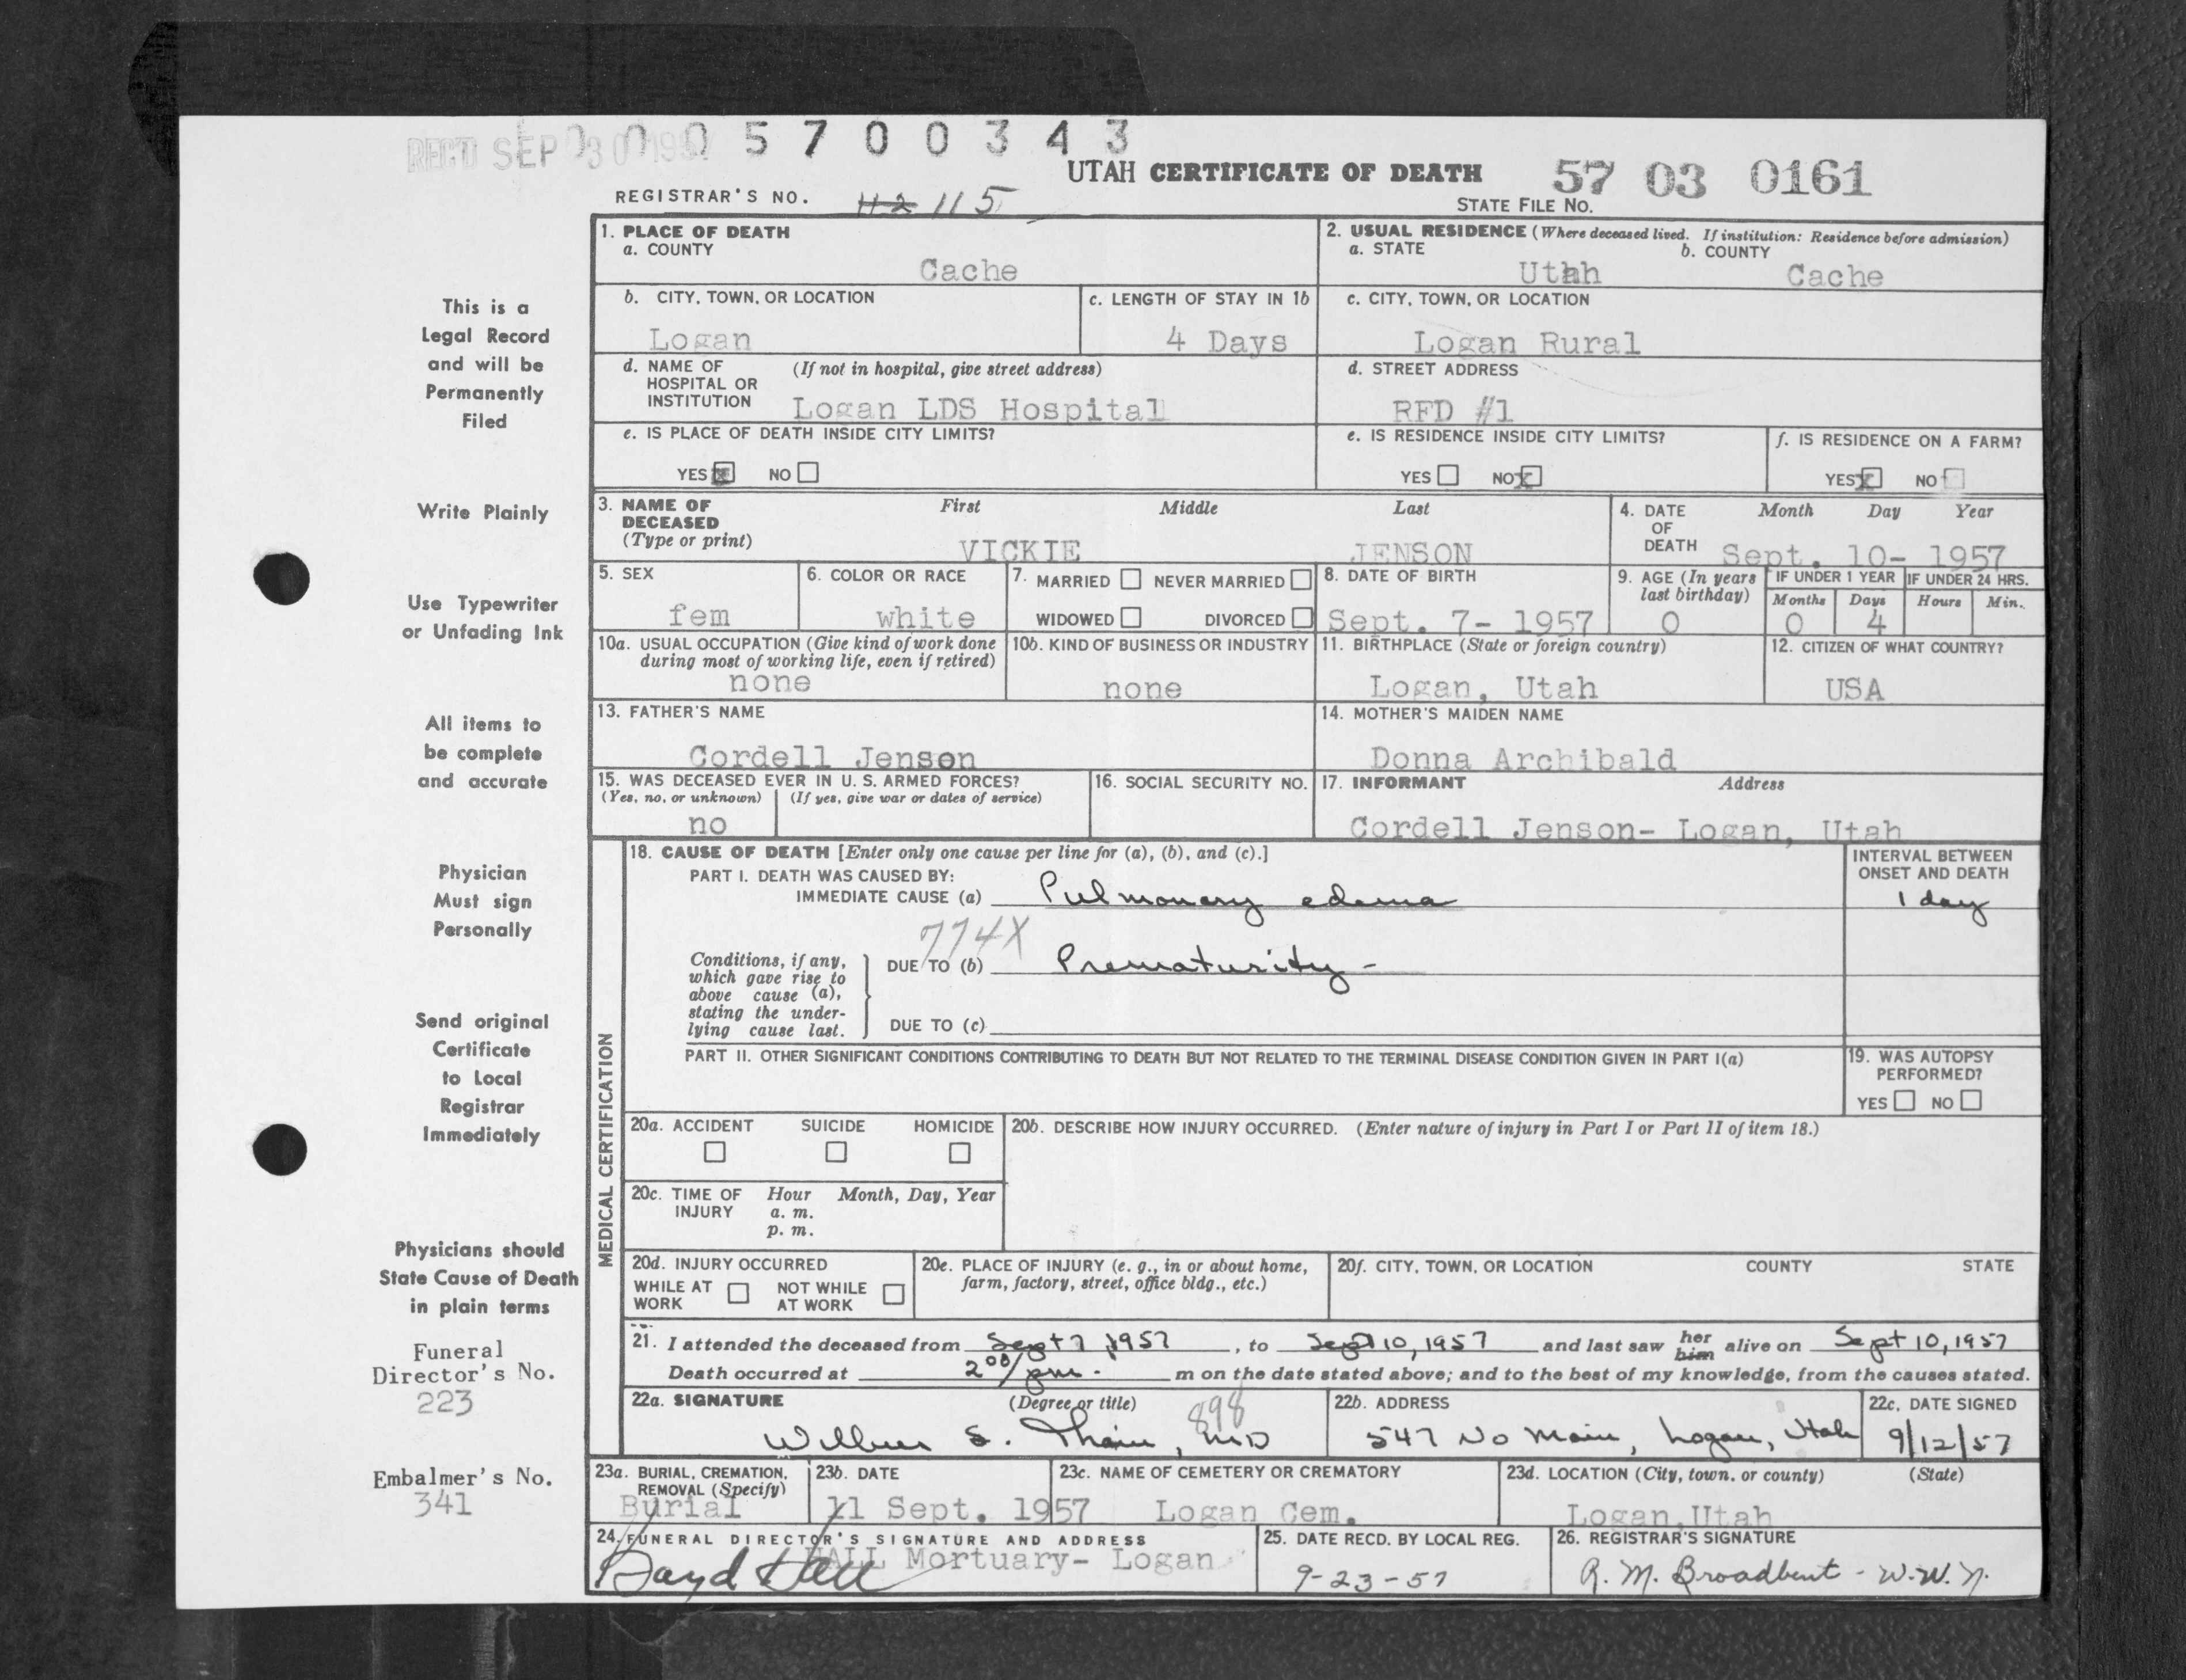 REC'D SEP 30 195
0 5 7 0 0 3 4 3
UTAH CERTIFICATE OF DEATH
57 03 0161
REGISTRAR'S NO. 112 115
STATE FILE NO.
1. PLACE OF DEATH
a. COUNTY
Cache
2. USUAL RESIDENCE (Where deceased lived. If institution: Residence before admission)
a. STATE b. COUNTY
Utah Cache
b. CITY, TOWN, OR LOCATION
Logan
c. LENGTH OF STAY IN 1b
4 Days
c. CITY, TOWN, OR LOCATION
Logan Rural
d. NAME OF HOSPITAL OR INSTITUTION (If not in hospital, give street address)
Logan LDS Hospital
d. STREET ADDRESS
RFD #1
e. IS PLACE OF DEATH INSIDE CITY LIMITS?
YES X NO
e. IS RESIDENCE INSIDE CITY LIMITS?
YES NO X
f. IS RESIDENCE ON A FARM?
YES X NO
3. NAME OF DECEASED (Type or print)
First Middle Last
VICKIE JENSON
4. DATE OF DEATH
Month Day Year
Sept. 10- 1957
5. SEX
fem
6. COLOR OR RACE
white
7. MARRIED NEVER MARRIED
WIDOWED DIVORCED
8. DATE OF BIRTH
Sept. 7- 1957
9. AGE (In years last birthday)
0
IF UNDER 1 YEAR IF UNDER 24 HRS.
Months Days Hours Min.
0 4
10a. USUAL OCCUPATION (Give kind of work done during most of working life, even if retired)
none
10b. KIND OF BUSINESS OR INDUSTRY
none
11. BIRTHPLACE (State or foreign country)
Logan, Utah
12. CITIZEN OF WHAT COUNTRY?
USA
13. FATHER'S NAME
Cordell Jenson
14. MOTHER'S MAIDEN NAME
Donna Archibald
15. WAS DECEASED EVER IN U. S. ARMED FORCES?
(Yes, no, or unknown) (If yes, give war or dates of service)
no
16. SOCIAL SECURITY NO.
17. INFORMANT Address
Cordell Jenson- Logan, Utah
MEDICAL CERTIFICATION
18. CAUSE OF DEATH [Enter only one cause per line for (a), (b), and (c).]
PART I. DEATH WAS CAUSED BY:
IMMEDIATE CAUSE (a) Pulmonary edema
INTERVAL BETWEEN ONSET AND DEATH
1 day
774X
Conditions, if any, which gave rise to above cause (a), stating the underlying cause last.
DUE TO (b) Prematurity -
DUE TO (c)
PART II. OTHER SIGNIFICANT CONDITIONS CONTRIBUTING TO DEATH BUT NOT RELATED TO THE TERMINAL DISEASE CONDITION GIVEN IN PART I(a)
19. WAS AUTOPSY PERFORMED?
YES NO
20a. ACCIDENT SUICIDE HOMICIDE
20b. DESCRIBE HOW INJURY OCCURRED. (Enter nature of injury in Part I or Part II of item 18.)
20c. TIME OF INJURY Hour Month, Day, Year
a. m.
p. m.
20d. INJURY OCCURRED
WHILE AT WORK NOT WHILE AT WORK
20e. PLACE OF INJURY (e. g., in or about home, farm, factory, street, office bldg., etc.)
20f. CITY, TOWN, OR LOCATION COUNTY STATE
21. I attended the deceased from Sept 7, 1957, to Sept 10, 1957 and last saw her him alive on Sept 10, 1957
Death occurred at 2 00/pm - m on the date stated above; and to the best of my knowledge, from the causes stated.
22a. SIGNATURE (Degree or title)
Wilbur S. Thain, MD
898
22b. ADDRESS
547 No Main, Logan, Utah
22c. DATE SIGNED
9/12/57
23a. BURIAL, CREMATION, REMOVAL (Specify)
Burial
23b. DATE
11 Sept. 1957
23c. NAME OF CEMETERY OR CREMATORY
Logan Cem.
23d. LOCATION (City, town, or county) (State)
Logan, Utah
24. FUNERAL DIRECTOR'S SIGNATURE AND ADDRESS
HALL Mortuary- Logan
Boyd Hall
25. DATE RECD. BY LOCAL REG.
9-23-57
26. REGISTRAR'S SIGNATURE
R. M. Broadbent - W.W.N.
This is a
Legal Record
and will be
Permanently
Filed
Write Plainly
Use Typewriter
or Unfading Ink
All items to
be complete
and accurate
Physician
Must sign
Personally
Send original
Certificate
to Local
Registrar
Immediately
Physicians should
State Cause of Death
in plain terms
Funeral
Director's No.
223
Embalmer's No.
341